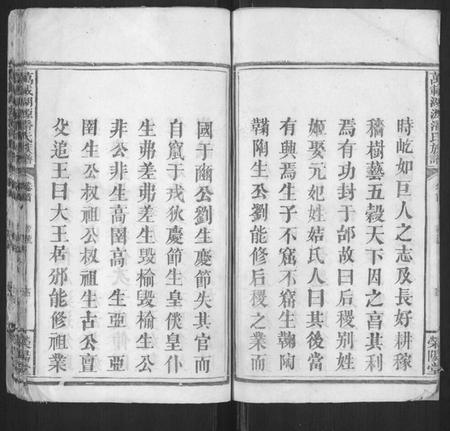 時屹如巨人之志及長好耕稼
穡樹藝五穀天下因之享其利
焉有功封于邰故曰后稷别姓
姬娶元妃姓姞氏人曰其後當
有興焉生子不窋不窋生鞠陶
鞠陶生公劉能修后稷之業而
國于豳公劉生慶節失其官而
自竄于戎狄慶節生皇僕皇仆
生弗差弗差生毀榆毀榆生公
非公非生高圉高　生亞　亞
圉生公叔祖公叔祖生古公亶
父追王曰大王居邠能修祖業
萬載湖源潘氏族譜
卷首
榮陽堂